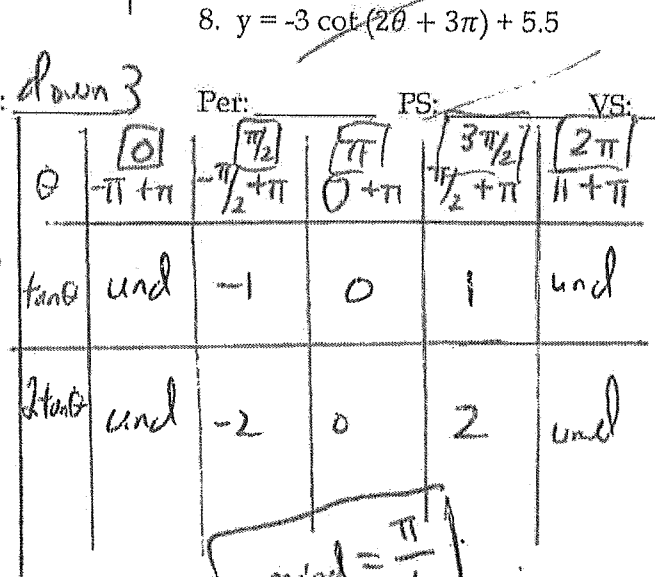 8. y = -3 cot (2θ + 3π) + 5.5
: down 3 Per: PS: VS:
0 π/2 π 3π/2 2π
θ -π + π -π/2 + π 0 + π π/2 + π π + π
tanθ und -1 0 1 und
2tanθ und -2 0 2 und
= π